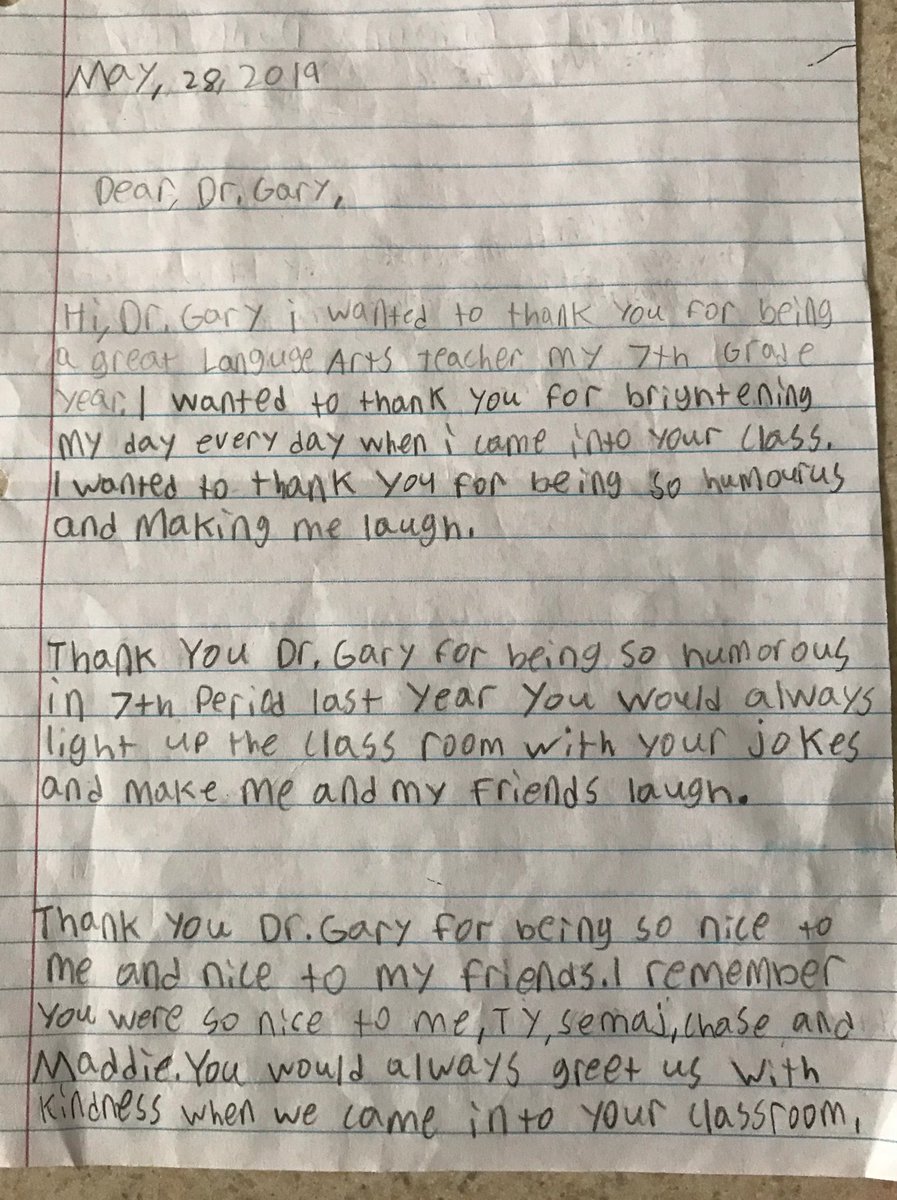 May, 28, 2019
Dear, Dr. Gary,
Hi, Dr. Gary i wanted to thank you for being
a great Languge Arts teacher my 7th Grade
year. I wanted to thank you for brightening
my day every day when i came into your class.
I wanted to thank you for being so humourus
and Making me laugh.
Thank You Dr. Gary for being so humorous
in 7th Period last year you would always
light up the class room with your jokes
and make me and my friends laugh.
Thank you Dr. Gary for being so nice to
me and nice to my friends. I remember
you were so nice to me, TY, semaj, chase and
Maddie. You would always greet us with
kindness when we came into your classroom.